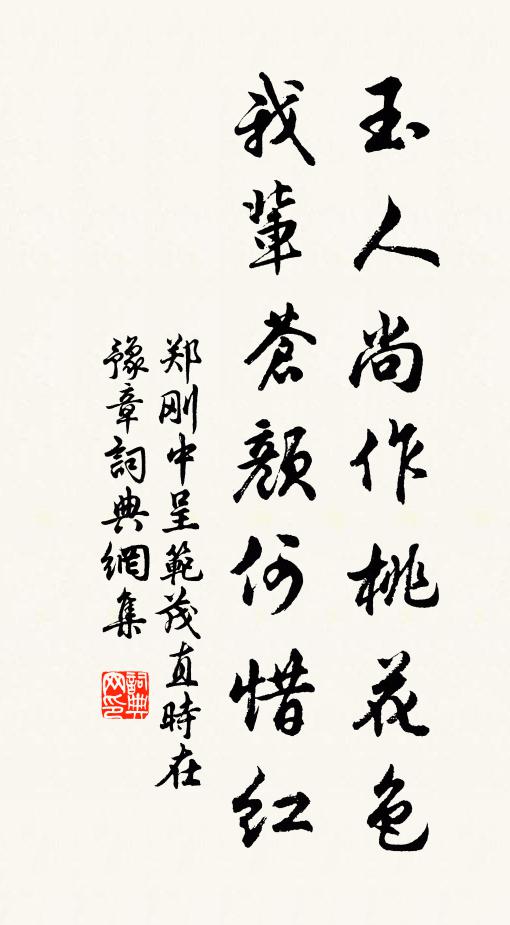 玉人尚作桃花色
我輩蒼顏何惜红
郑刚中呈範茂直時在
豫章詞典網集
詞典网印